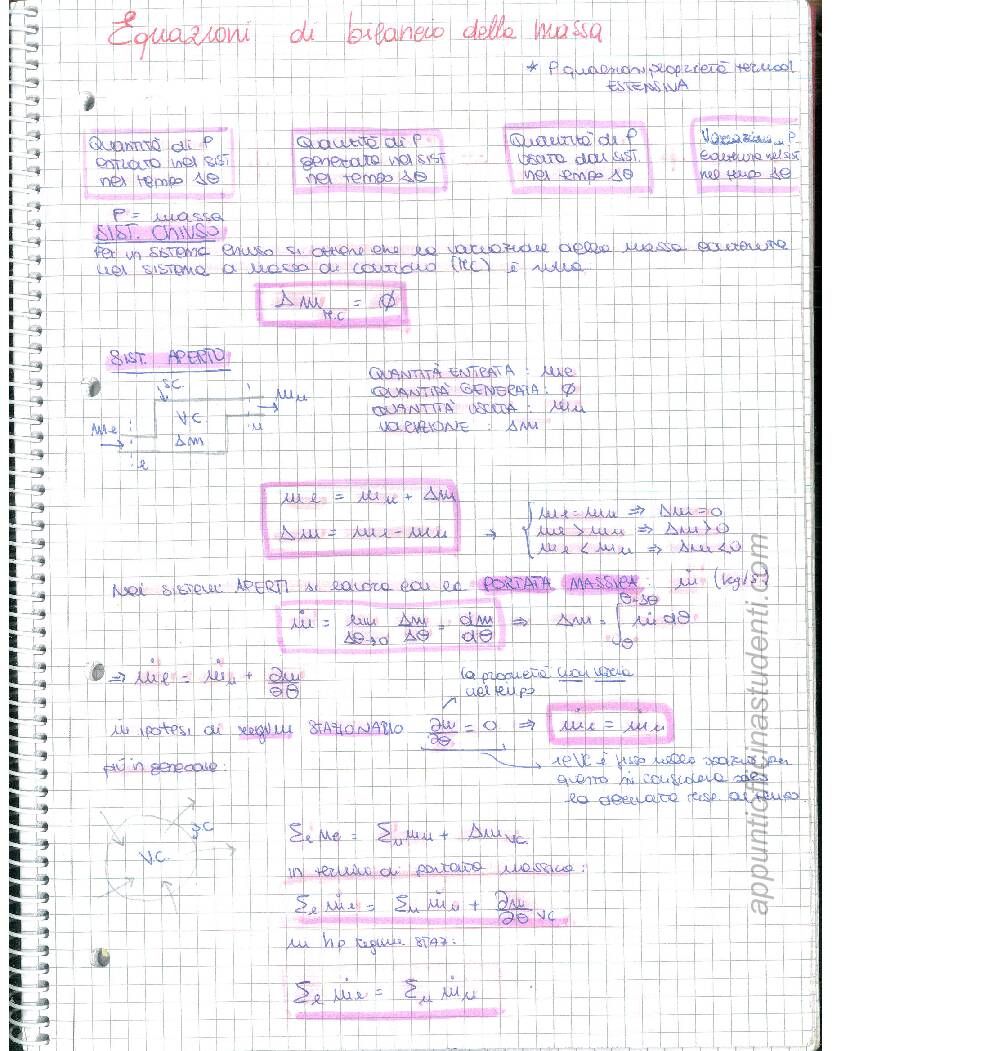 Equazioni di bilancio della massa
* P qualsiasi proprietà termod.
ESTENSIVA
Quantità di P
entrata nel SIST.
nel tempo Δθ
Quantità di P
generata nel SIST
nel tempo Δθ
Quantità di P
uscita dal SIST.
nel tempo Δθ
Variazione P
contenuta nel SIST
nel tempo Δθ
P = massa
SIST. CHIUSO
Per un sistema chiuso si ottiene che la variazione della massa contenuta
nel sistema a massa di controllo (MC) è nulla
Δm M.C = ∅
SIST. APERTO
SC.
mu
VC
me
Δm
u
e
QUANTITÀ ENTRATA : me
QUANTITÀ GENERATA : ∅
QUANTITÀ USCITA : mu
VARIAZIONE : Δm
me = mu + Δm
Δm = me - mu →
me = mu ⇒ Δm = 0
me > mu ⇒ Δm > 0
me < mu ⇒ Δm < 0
Nei sistemi APERTI si lavora con la PORTATA MASSICA: ṁ (kg/s)
ṁ = lim Δθ→0 Δm/Δθ = dm/dθ ⇒ Δm = ∫ ṁ dθ
⇒ ṁe = ṁu + ∂m/∂θ
la proprietà non varia
nel tempo
in ipotesi di regime STAZIONARIO ∂m/∂θ = 0 ⇒ ṁe = ṁu
più in generale:
il VC è fisso nello spazio per
questo si considera solo
la derivata risp. al tempo
SC
V.C.
Σe me = Σu mu + Δm VC.
in termini di portata massica:
Σe ṁe = Σu ṁu + ∂m/∂θ VC
in hp regime STAZ:
Σe ṁe = Σu ṁu
appuntiofficinastudenti.com